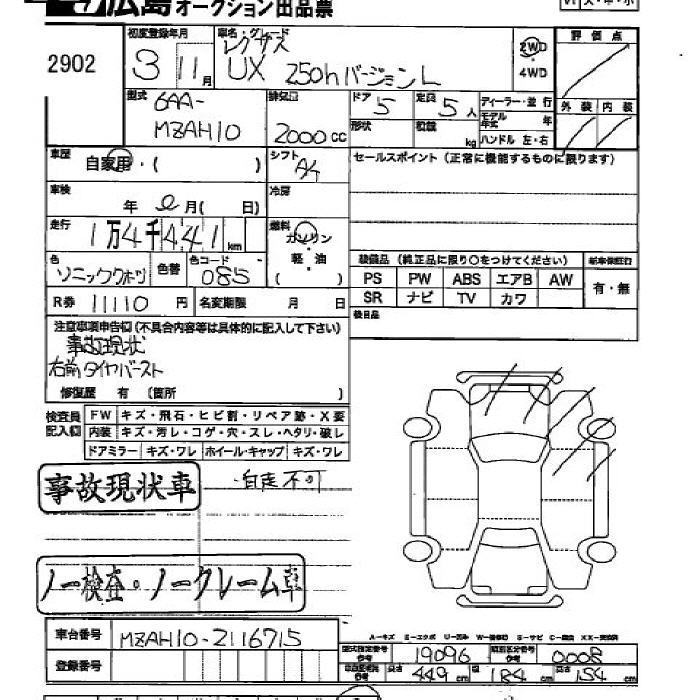 広島オークション出品票
2902
初度登録年月 3 11月
車名・グレード レクサス UX 250hバージョンL
2WD
4WD
評価点
外装 内装
型式 6AA-MZAH10
排気量 2000cc
ドア 5
定員 5人
形状
積載 kg
ディーラー・並行
モデル年式 年
ハンドル 左・右
車歴 自家用・( )
シフト
セールスポイント(正常に機能するものに限ります)
車検 年 月( 日)
冷房
走行 1万4千441km
燃料 ガソリン
軽・油
( )
色 ソニッククォーツ 色替
色コード 085
装備品(純正品に限り○をつけてください)
新車保証書
PS PW ABS エアB AW
SR ナビ TV カワ
有・無
R券 11110円 名変期限 月 日
後日品
注意事項申告欄(不具合内容等は具体的に記入して下さい)
事故現状
右前タイヤバースト
修復歴 有 (箇所 )
検査員記入欄
FW キズ・飛石・ヒビ割・リペア跡・X要
内装 キズ・汚レ・コゲ・穴・スレ・ヘタリ・破レ
ドアミラー キズ・ワレ ホイール・キャップ キズ・ワレ
事故現状車
・自走不可
ノー検査・ノークレーム車
A-キズ E-エクボ U-凹み W-補修跡 S-サビ C-腐食 XX-交換済
車台番号 MZAH10-2116715
型式指定番号 参考 19096 類別区分番号 参考 0008
登録番号
長さ 449cm 184cm 154cm